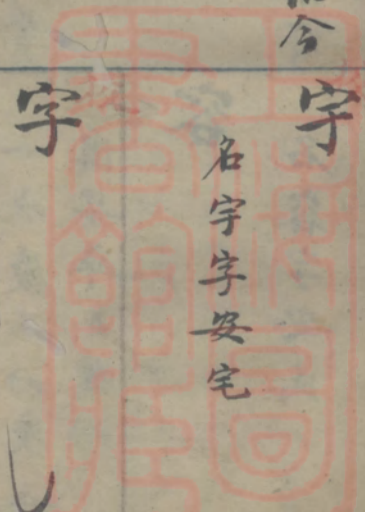 今
字
名宇字安宅
字